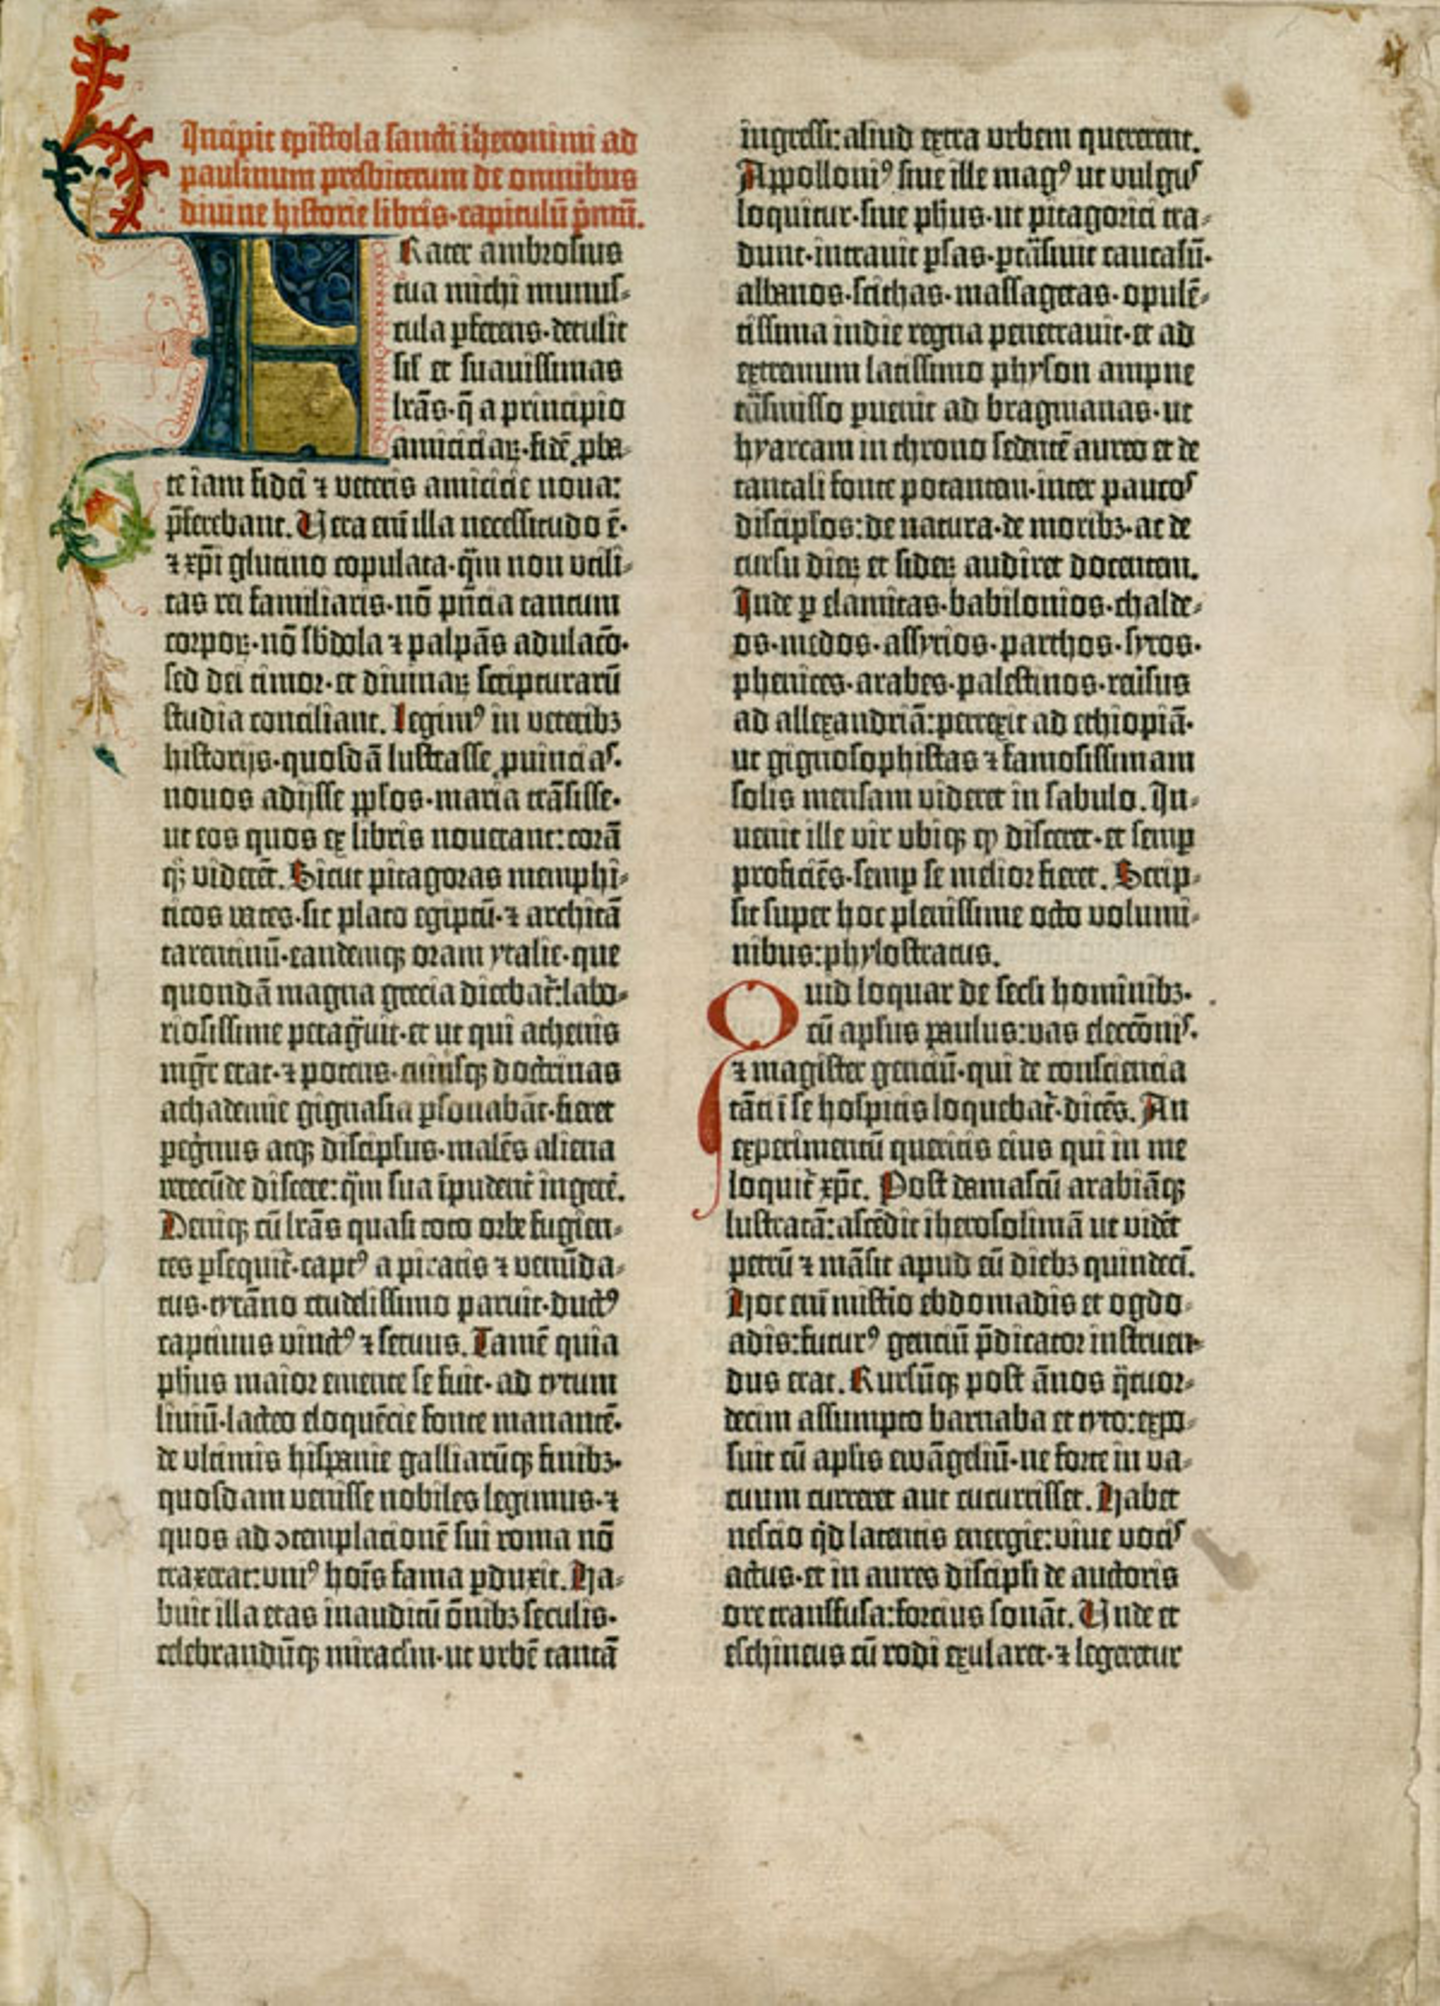 Incipit epistola sancti iheronimi ad
paulinum presbiterum de omnibus
divine historie libris·capitulū p̄mū.
FRater ambrosius
tua michi munus-
cula pferens·detulit
sil' et suavissimas
lrās·q̄ a principio
amiciciaꝝ·fidē ꝓba-
te iam fidei ⁊ veteris amicicie nova:
p̄ferebant. Vera em̄ illa necessitudo ē·
⁊ xp̄i glutino copulata·q̄m non utili-
tas rei familiaris·nō pn̄cia tantum
corpoꝝ·nō sb̄dola ⁊ palpās adulacō·
sed dei timor·et divinaꝝ scripturarū
studia conciliant. Legimꝰ in veteribꝫ
historijs·quosdā lustrasse ꝓvincias·
novos adijsse pplos·maria trāsisse·
ut eos quos ex libris noverant: corā
qꝫ viderēt. Sicut pitagoras memphi-
ticos vates·sic plato egiptū·⁊ architā
tarentinū·eandemqꝫ oram ytalie·que
quondā magna grecia dicebat̄: labo-
riosissime peragravit·et ut qui athenis
mgr̄ erat·⁊ potens·cuiusqꝫ doctrinas
achademie gignasia ꝑsonabāt·fieret
pegrinus atqꝫ discipulus·malēs aliena
verecūde discere: q̄m sua īpudent̄ ingerē.
Deniqꝫ cū lrās quasi toto orbe fugien-
tes ꝑsequit̄·captꝰ a piratis ⁊ venūda-
tus·tyrāno crudelissimo paruit·ductꝰ
captivus vinctꝰ ⁊ servus. Tamē quia
phūs maior emente se fuit·ad tytum
liviū·lacteo eloquēcie fonte manantē·
de ultimis hispanie galliarūqꝫ finibꝫ·
quosdam venisse nobiles legimus·⁊
quos ad ↄtemplacionē sui roma nō
traxerat: uniꝰ hoīs fama ꝑduxit. Ha-
buit illa etas inauditū oīnibꝫ seculis·
celebrandūqꝫ miraclm·ut urbē tantā
ingressi: aliud extra urbem quererent.
Appolloniꝰ sive ille magꝰ ut vulgus
loquitur·sive phūs·ut pitagorici tra-
dunt·intravit ꝑsas·ꝑtrāsivit caucasū·
albanos·scithas·massagetas·opulē-
tissima indie regna penetravit·et ad
extremum latissimo physon ampne
trāsmisso ꝑvenit ad bragmanas·ut
hyarcam in throno sedentē aureo et de
tantali fonte potantem·inter paucos
discipl̄os: de natura·de moribꝫ·ac de
cursu dieꝝ et sideꝝ audiret docentem.
Inde ꝑ elamitas·babilonios·chalde-
os·medos·assyrios·parthos·syros·
phenices·arabes·palestinos·reūsus
ad allexandriā: perrexit ad ethiopiā·
ut gignosophistas ⁊ famosissimam
solis mensam videret in sabulo. In-
venit ille vir ubiqꝫ qḋ disceret·et semꝑ
proficiēs·semꝑ se melior fieret. Scrip-
sit super hoc plenissime octo volumi-
nibus: phylostratus.
Quid loquar de secli hominibꝫ·
cū apl̄us paulus: vas eleccōnis·
⁊ magister genciū·qui de consciencia
tāti ī se hospitis loquebat̄·dicēs. An
experimentū queritis eius qui in me
loquit̄ xp̄c. Post damascū arabiāqꝫ
lustratā: ascēdit iherosolimā ut vidēt
petrū ⁊ māsit apud eū diebꝫ quindecī.
Hoc em̄ mistio ebdomadis et ogdo-
adis: futurꝰ genciū p̄dicator instruen-
dus erat. Rursūqꝫ post ānos q̄tuor-
decim assumpto barnaba et tyto: expo-
suit cū apl̄is ewāgeliū·ne forte in va-
cuum curreret aut cucurrisset. Habet
nescio qḋ latentis energie: vive vocis
actus·et in aures discipli de auctoris
ore transfusa: forcius sonāt. Unde et
eschineus cū rodi exularet·⁊ legeretur